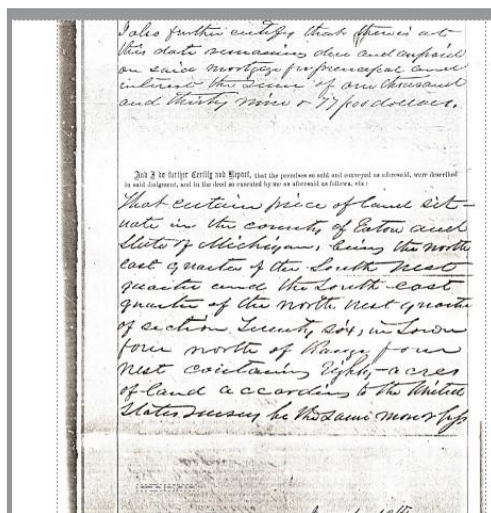 I also further certify that there is at
this date remaining due and unpaid
on said mortgage for principal and
interest the sum of one thousand
and thirty nine & 77/100 dollars.
And I do further Certify and Report, that the premises so sold and conveyed as aforesaid, were described
in said Judgment, and in the deed so executed by me as aforesaid as follows, viz:
That certain piece of land sit-
uate in the county of Eaton and
State of Michigan, being the north
east quarter of the South West
quarter and the South east
quarter of the north West quarter
of section Twenty six, in Town
four north of Range four
West containing Eighty acres
of land according to the United
States survey be the same more or less